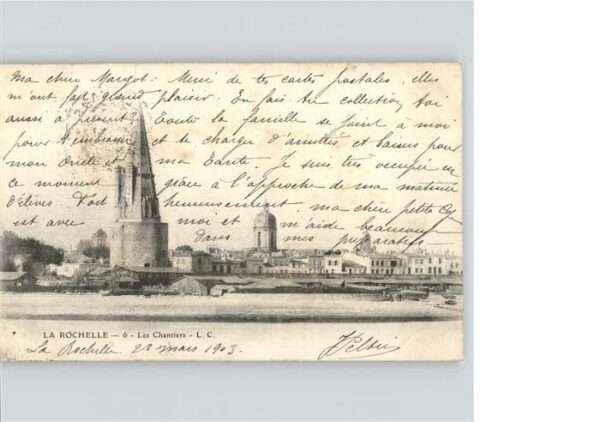 Ma chère Margot. Merci de tes cartes postales, elles
m'ont fait grand plaisir. En fais tu collection, toi
aussi à présent? Toute la famille se joint à moi
pour t'embrasser et te charger d'amitiés et baisers pour
mon Oncle et ma Tante. Je suis très occupée en
ce moment grâce à l'approche de ma matinée
d'élèves. Fort heureusement, ma chère petite
est avec moi et m'aide beaucoup
dans mes préparatifs
LA ROCHELLE — 6 - Les Chantiers - L. C.
La Rochelle 22 mars 1903.